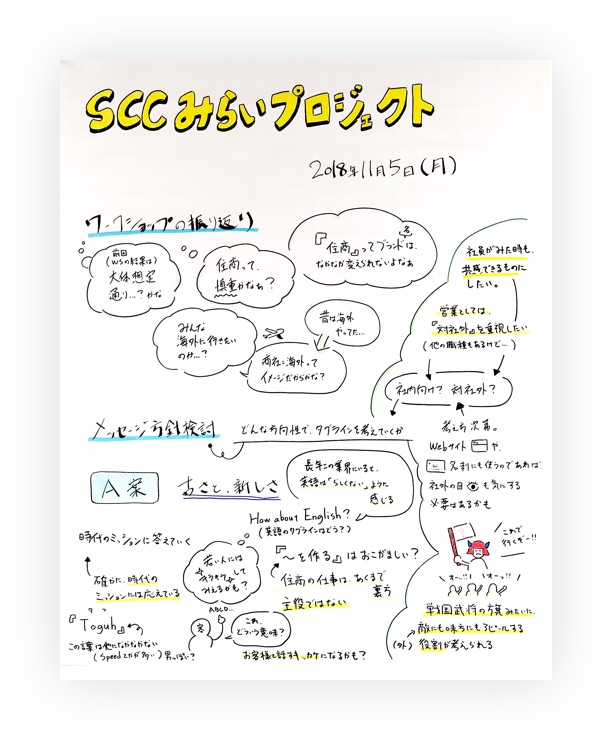 SCCみらいプロジェクト
2018年11月5日(月)
ワークショップの振り返り
前回
(WSの結果は)
大体想定
通り…?かな
住商って、
慎重かなぁ?
『住商』ってブランド名は、
なかなか変えられないよなぁ
みんな
海外に行きたい
のか…?
昔は海外
やってた…
商社=海外って
イメージだからかな?
社員がみた時も、
共感できるものに
したい。
営業としては、
『対社外』を重視したい
(他の職種もあるけど…)
社内向け? 対社外?
考え方次第。
Webサイトや、
名刺にも使うのであれば、
社外の目も気にする
必要はあるかも
メッセージ方針検討
どんな方向性で、タグラインを考えていくか
A案
あさと、新しさ
長年この業界にいると、
英語は「らしくない」ように
感じる
How about English?
(英語のタグラインはどう?)
時代のミッションに答えていく
確かに、時代の
ミッションには応えている
若い人には
キラキラして
みえるかも?
『〜を作る』はおこがましい?
住商の仕事は、あくまで
裏方
主役ではない
『Tough』
この言葉は他になかなかない
(Speedとかが多い)
男っぽい?
ABCD…
これ、
どういう意味?
お客様と話すキッカケになるかも?
これで
行くぞー!!
オーッ!!
オーッ!!
戦国武将の旗みたいに、
敵にも味方にもアピールする
(外)
役割が考えられる